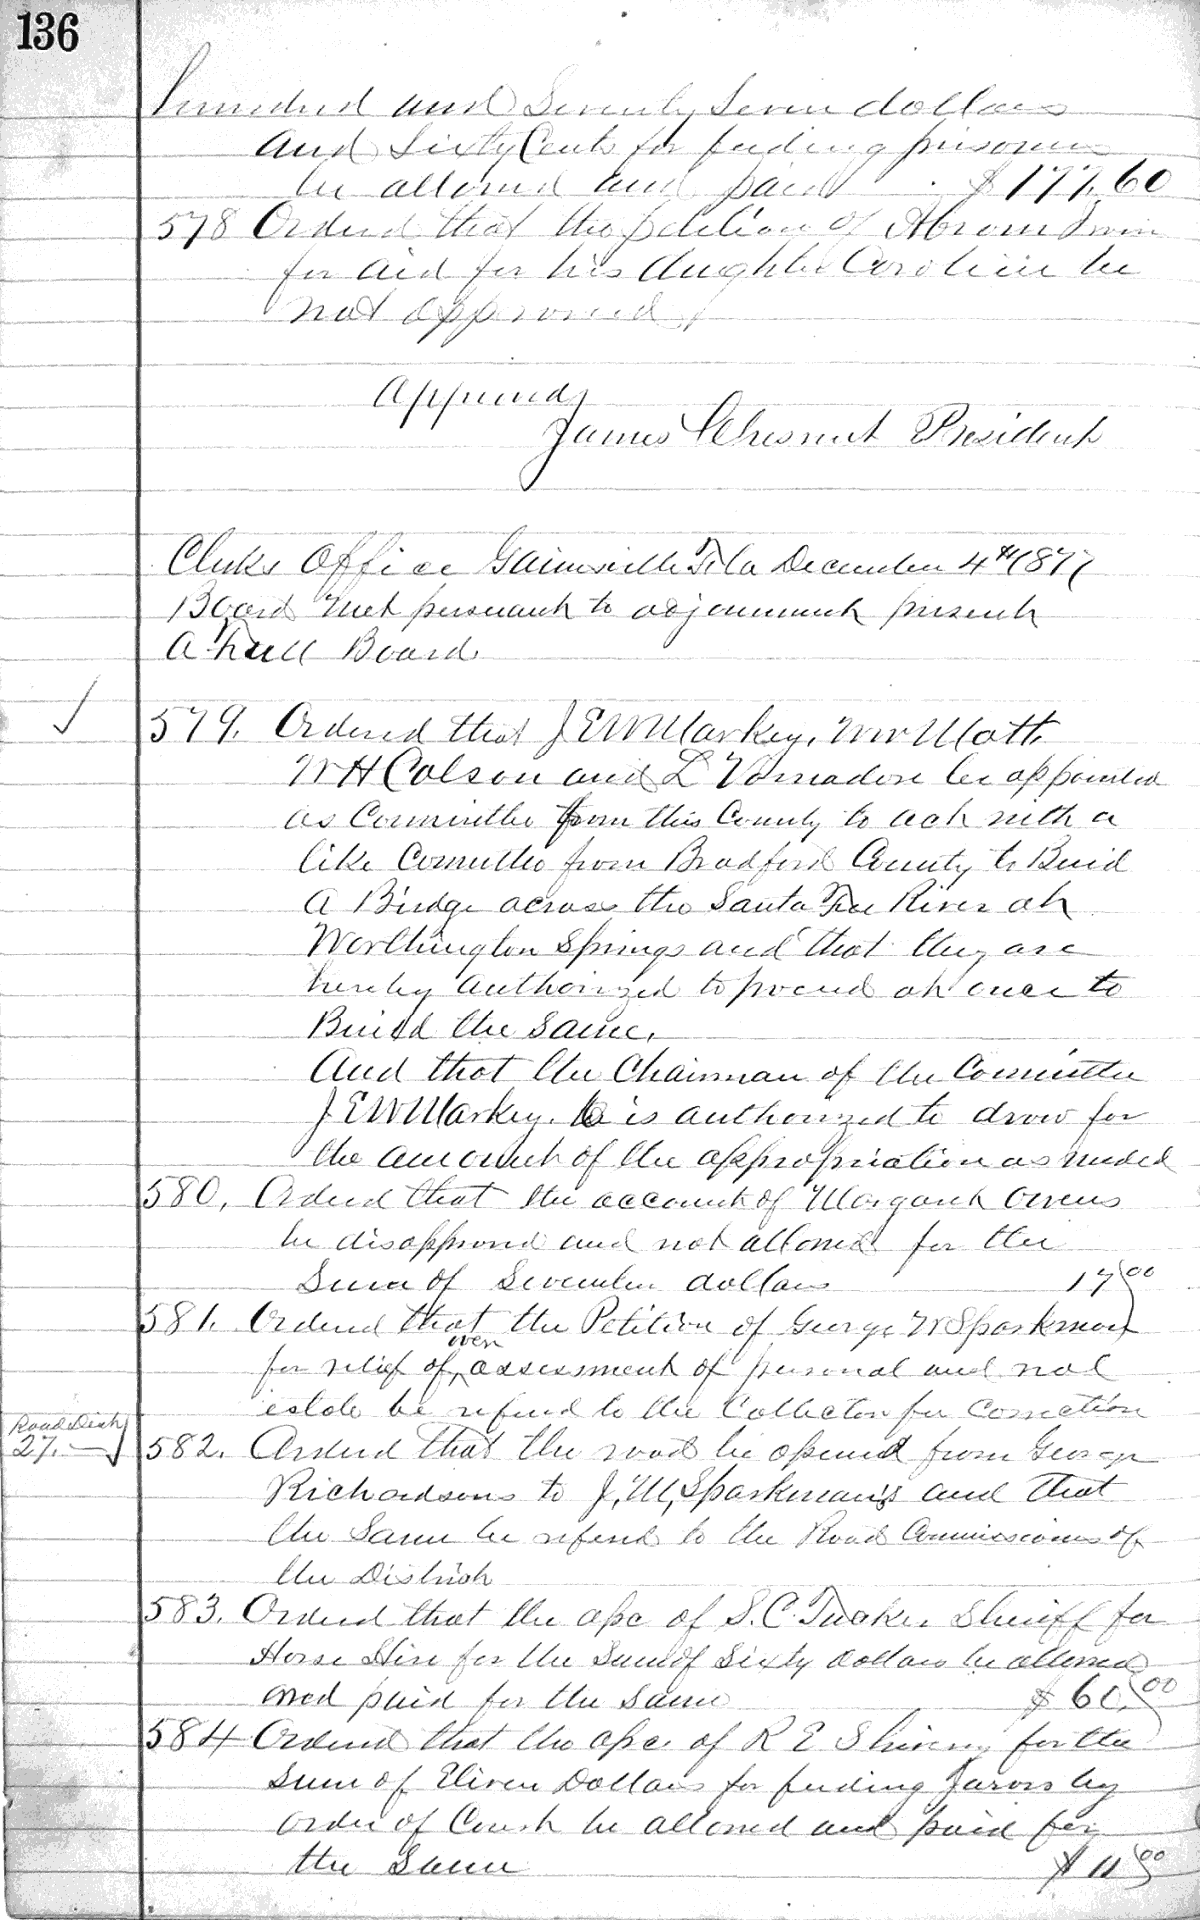 136
hundred and Seventy Seven dollars
and Sixty Cents for feeding prisoners
be allowed and paid . $177.60
578 Ordered that the petition of Abrom
for aid for his daughter Caroline be
not approved
Approved,
James Chesnut President
Clerks Office Gainesville Fla December 4th 1877
Board met persuant to adjournment present
a full Board.
579. Ordered that J E W Markey, Wm Mott,
W H Colson and L Vomadore be appointed
as Committee from this County to act with a
like Comittee from Bradford County to Build
a Bridge across the Santa Fee River at
Worthington Springs and that they are
hereby authorized to proceed at once to
Build the same.
And that the Chairman of the Comittee
J E W Markey. is authorized to draw for
the amount of the appropriation as needed
580. Ordered that the account of Margaret Owens
be disapproved and not allowed for the
Sum of Seventeen dollars 17 00
581. Ordered that the Petition of George W Sparkman
for relief of over assessment of personal and real
estate be referred to the Collector for Correction
Road Dist
27.
582. Ordered that the road be opened from George
Richardsons to J, M, Sparkman's and that
the Same be referred to the Road Commissioners of
the District
583. Ordered that the a/c of S. C. Tucker Sheriff for
Horse Hire for the Sum of Sixty dollars be allowed
and paid for the same $ 60. 00
584 Ordered that the a/c. of R E for the
sum of Eleven Dollars for feeding Jurors by
order of Court be allowed and paid for
the Same $ 11 00